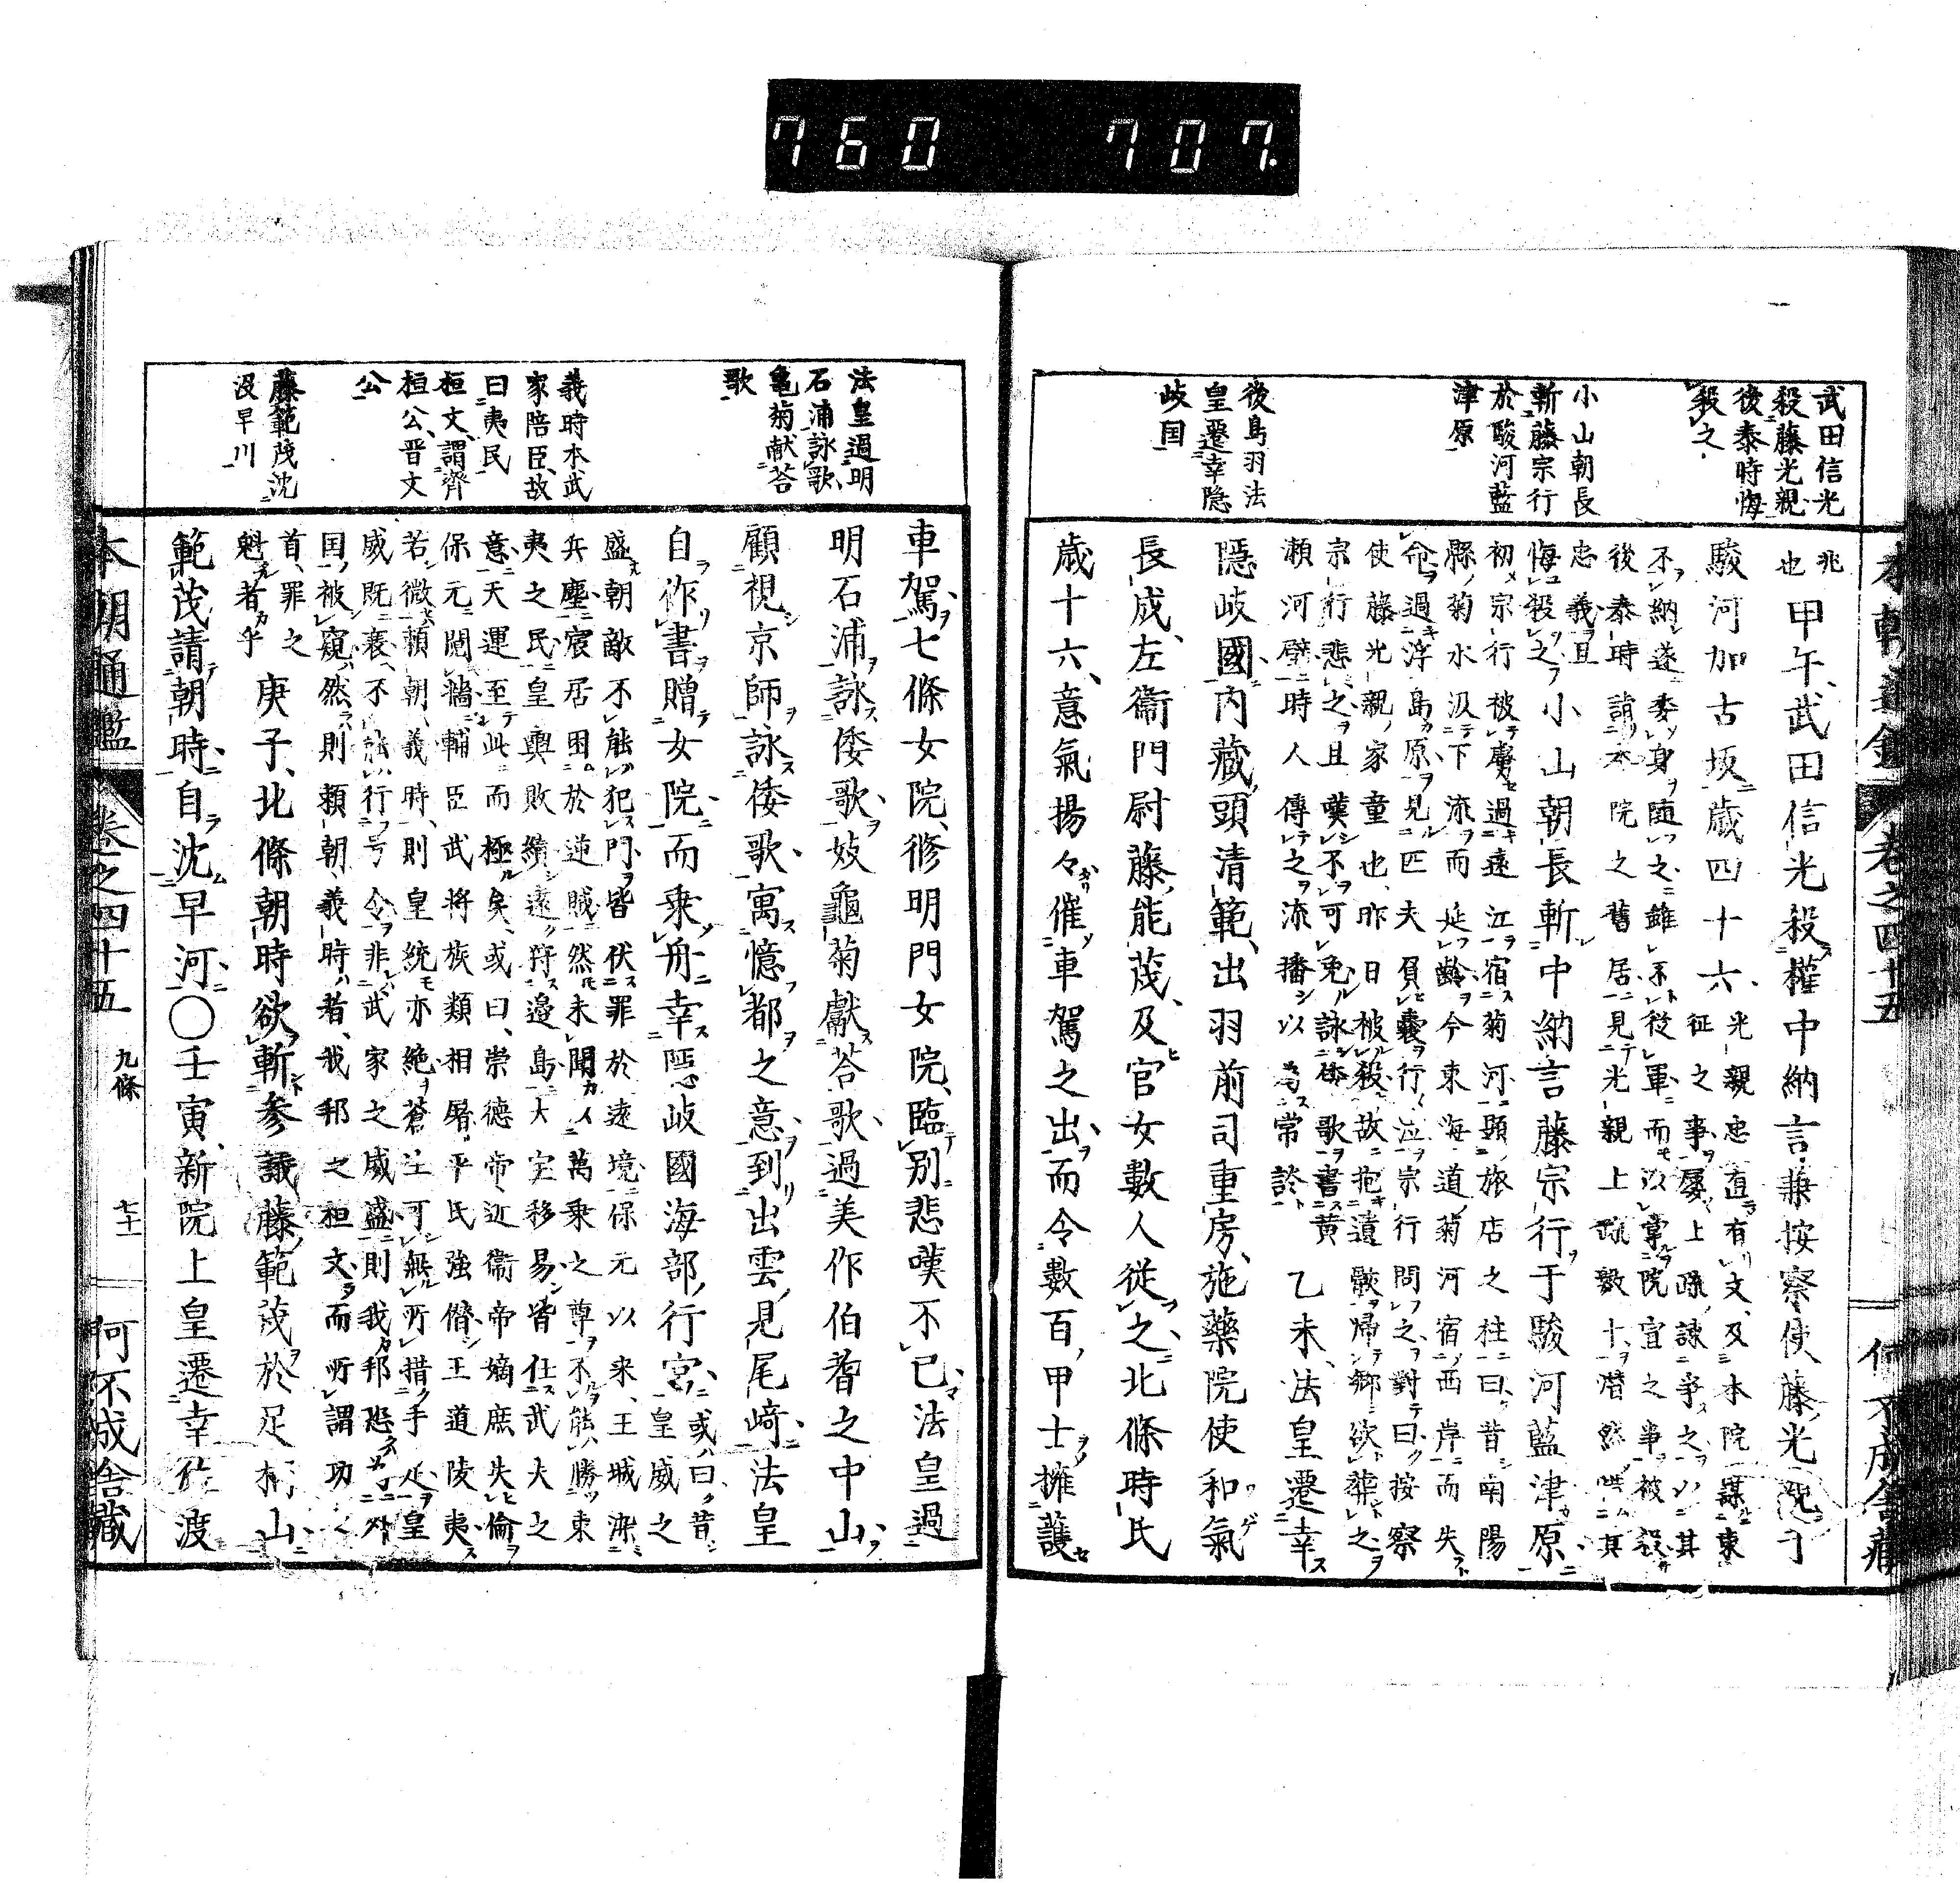 760 707.
武田信光
殺藤光親
後泰時悔
殺之
小山朝長
斬藤宗行
於駿河藍
津原
後鳥羽法
皇遷幸隠
岐国
兆也甲午武田信光殺權中納言兼按察使藤光親于
駿河加古坂歳四十六
光親忠直有文及本院謀東
征之事屡上疏諫爭之以其
不納遂委身随之雖不從軍而以掌院宣之事被殺
後泰時詣本院之舊居見光親上疏数十潜然其
忠義且
悔殺之
小山朝長斬中納言藤宗行于駿河藍津原
初宗行被虜過遠江宿菊河題旅店之柱曰昔南陽
縣菊水汲下流而延齡今東海道菊河宿西岸而失
命過浮島原見匹夫負嚢行泣宗行問之對曰按察
使藤光親家童也昨日被殺故抱遺骸歸郷欲葬之
宗行悲之且嘆不可免詠倭歌書黄
瀬河壁時人傳之流播以為常談
乙未法皇遷幸
隠岐國内藏頭清範出羽前司重房施藥院使和氣
長成左衞門尉藤能茂及官女數人從之北條時氏
歳十六意氣揚々催車駕之出而令數百甲士擁護
本朝通鑑 卷之四十五 何不成舍藏
法皇過明
石浦詠歌
亀菊献荅
歌
義時本武
家陪臣故
曰夷民
桓文謂齊
桓公晋文
公
藤範茂沈
没早川
車駕七條女院修明門女院臨別悲嘆不已法皇過
明石浦詠倭歌妓龜菊獻荅歌過美作伯耆之中山
顧視京師詠倭歌寓憶都之意到出雲見尾﨑法皇
自作書贈女院而乗舟幸隠岐國海部行宮
或曰昔
皇威之
盛朝敵不能犯門皆伏罪於遠境保元以来王城濺
兵塵宸居困於逆賊然未聞以萬乗之尊不能勝東
夷之民皇輿敗績遠狩邉島大宝移易皆仕武夫之
意天運至此而極矣或曰崇德帝近衞帝嫡庶失倫
保元鬩牆輔臣武將族類相屠平氏強僣王道陵夷
若微頼朝義時則皇統亦絶蒼生可無所措手足皇
威既衰不能行号令非武家之威盛則我邦恐為外
国被窺然則頼朝義時者我邦之桓文而所謂功之
首罪之
魁者乎
庚子北條朝時欲斬参議藤範茂於足柄山
範茂請朝時自沈早河〇壬寅新院上皇遷幸佐渡
本朝通鑑 卷之四十五 九條 七十一 何不成舍藏